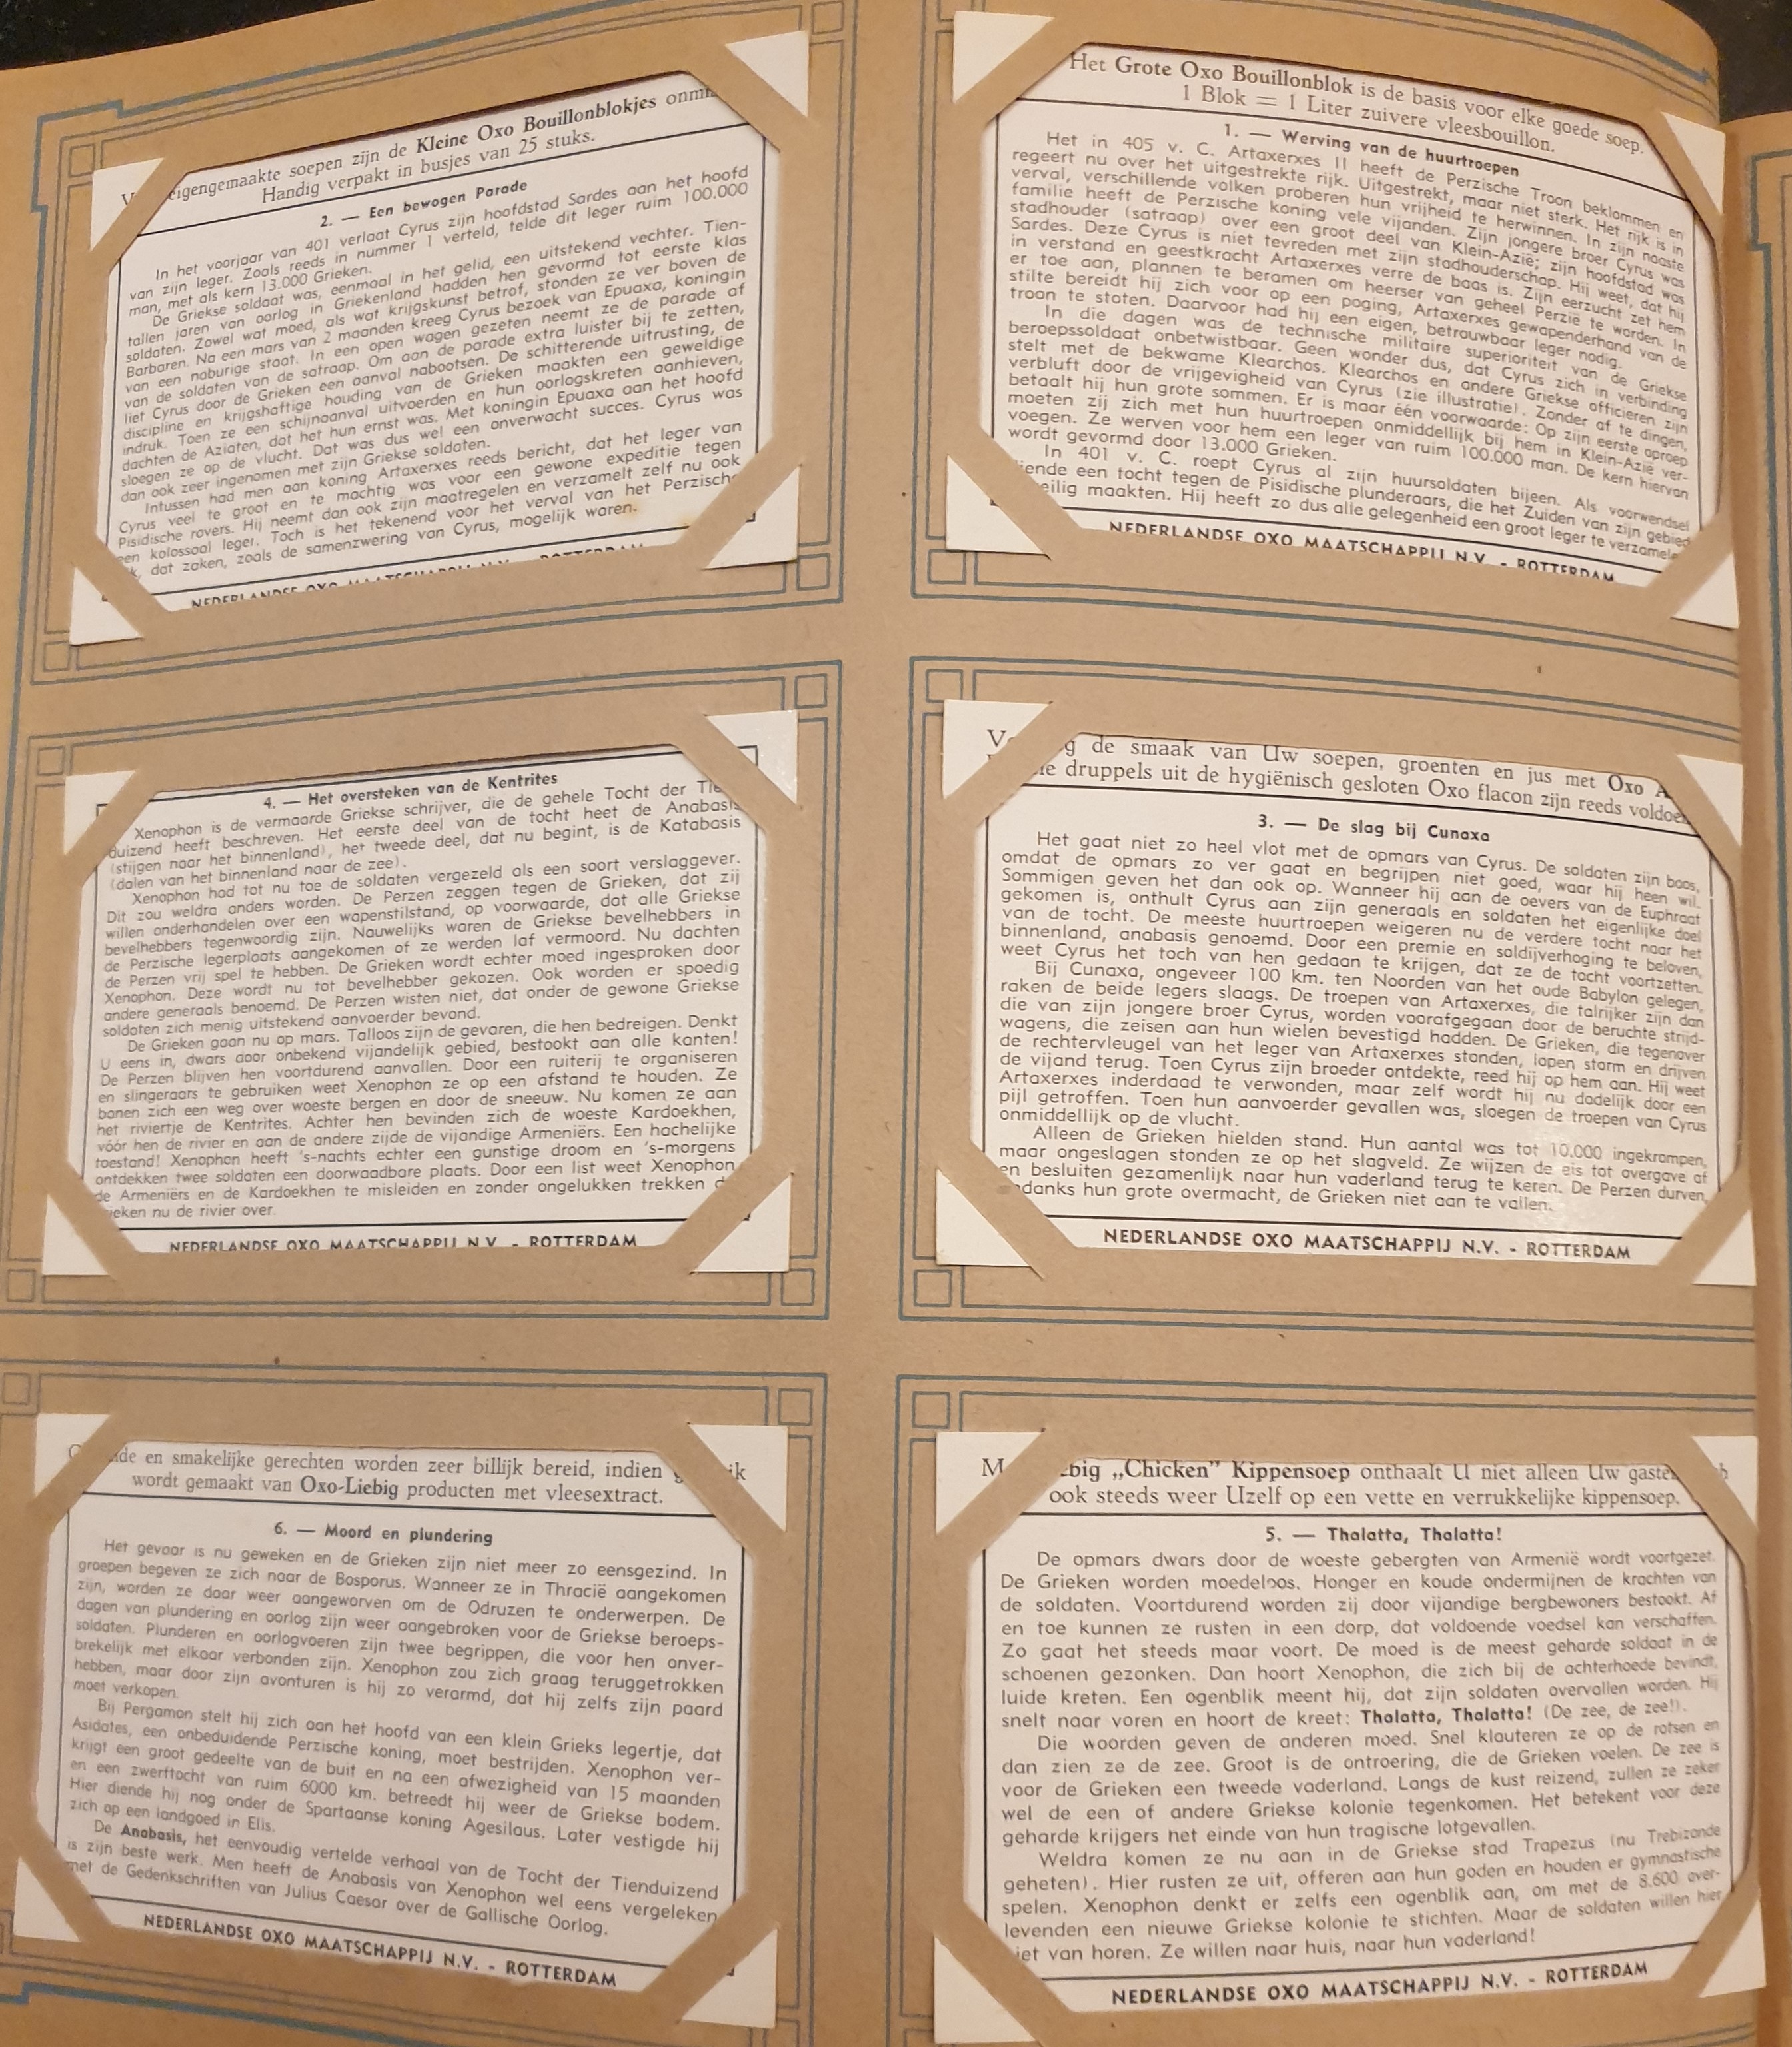 eigengemaakte soepen zijn de Kleine Oxo Bouillonblokjes
Handig verpakt in busjes van 25 stuks.
2. — Een bewogen Parade
In het voorjaar van 401 verlaat Cyrus zijn hoofdstad Sardes aan het hoofd
van zijn leger. Zoals reeds in nummer 1 verteld, telde dit leger ruim 100.000
man, met als kern 13.000 Grieken.
De Griekse soldaat was, eenmaal in het gelid, een uitstekend vechter. Tien-
tallen jaren van oorlog in Griekenland hadden hen gevormd tot eerste klas
soldaten. Zowel wat moed, als wat krijgskunst betrof, stonden ze ver boven de
Barbaren. Na een mars van 2 maanden kreeg Cyrus bezoek van Epuaxa, koningin
van een naburige staat. In een open wagen gezeten neemt ze de parade af
van de soldaten van de satraap. Om aan de parade extra luister bij te zetten,
liet Cyrus door de Grieken een aanval nabootsen. De schitterende uitrusting, de
discipline en krijgshaftige houding van de Grieken maakten een geweldige
indruk. Toen ze een schijnaanval uitvoerden en hun oorlogskreten aanhieven,
dachten de Aziaten, dat het hun ernst was. Met koningin Epuaxa aan het hoofd
sloegen ze op de vlucht. Dat was dus wel een onverwacht succes. Cyrus was
dan ook zeer ingenomen met zijn Griekse soldaten.
Intussen had men aan koning Artaxerxes reeds bericht, dat het leger van
Cyrus veel te groot en te machtig was voor een gewone expeditie tegen
Pisidische rovers. Hij neemt dan ook zijn maatregelen en verzamelt zelf nu ook
een kolossaal leger. Toch is het tekenend voor het verval van het Perzische
dat zaken, zoals de samenzwering van Cyrus, mogelijk waren.
NEDERLANDSE OXO MAATSCHAPPIJ N.V. - ROTTERDAM
Het Grote Oxo Bouillonblok is de basis voor elke goede soep.
1 Blok = 1 Liter zuivere vleesbouillon.
1. — Werving van de huurtroepen
Het in 405 v. C. Artaxerxes II heeft de Perzische Troon beklommen en
regeert nu over het uitgestrekte rijk. Uitgestrekt, maar niet sterk. Het rijk is in
verval, verschillende volken proberen hun vrijheid te herwinnen. In zijn naaste
familie heeft de Perzische koning vele vijanden. Zijn jongere broer Cyrus was
stadhouder (satraap) over een groot deel van Klein-Azië; zijn hoofdstad was
Sardes. Deze Cyrus is niet tevreden met zijn stadhouderschap. Hij weet, dat hij
in verstand en geestkracht Artaxerxes verre de baas is. Zijn eerzucht zet hem
er toe aan, plannen te beramen om heerser van geheel Perzië te worden. In
stilte bereidt hij zich voor op een poging, Artaxerxes gewapenderhand van de
troon te stoten. Daarvoor had hij een eigen, betrouwbaar leger nodig.
In die dagen was de technische militaire superioriteit van de Griekse
beroepssoldaat onbetwistbaar. Geen wonder dus, dat Cyrus zich in verbinding
stelt met de bekwame Klearchos. Klearchos en andere Griekse officieren zijn
verbluft door de vrijgevigheid van Cyrus (zie illustratie). Zonder af te dingen,
betaalt hij hun grote sommen. Er is maar één voorwaarde: Op zijn eerste oproep
moeten zij zich met hun huurtroepen onmiddellijk bij hem in Klein-Azië ver-
voegen. Ze werven voor hem een leger van ruim 100.000 man. De kern hiervan
wordt gevormd door 13.000 Grieken.
In 401 v. C. roept Cyrus al zijn huursoldaten bijeen. Als voorwendsel
diende een tocht tegen de Pisidische plunderaars, die het Zuiden van zijn gebied
onveilig maakten. Hij heeft zo dus alle gelegenheid een groot leger te verzamelen
NEDERLANDSE OXO MAATSCHAPPIJ N.V. - ROTTERDAM
4. — Het oversteken van de Kentrites
Xenophon is de vermaarde Griekse schrijver, die de gehele Tocht der Tien
duizend heeft beschreven. Het eerste deel van de tocht heet de Anabasis
(stijgen naar het binnenland), het tweede deel, dat nu begint, is de Katabasis
(dalen van het binnenland naar de zee).
Xenophon had tot nu toe de soldaten vergezeld als een soort verslaggever.
Dit zou weldra anders worden. De Perzen zeggen tegen de Grieken, dat zij
willen onderhandelen over een wapenstilstand, op voorwaarde, dat alle Griekse
bevelhebbers tegenwoordig zijn. Nauwelijks waren de Griekse bevelhebbers in
de Perzische legerplaats aangekomen of ze werden laf vermoord. Nu dachten
de Perzen vrij spel te hebben. De Grieken wordt echter moed ingesproken door
Xenophon. Deze wordt nu tot bevelhebber gekozen. Ook worden er spoedig
andere generaals benoemd. De Perzen wisten niet, dat onder de gewone Griekse
soldaten zich menig uitstekend aanvoerder bevond.
De Grieken gaan nu op mars. Talloos zijn de gevaren, die hen bedreigen. Denkt
U eens in, dwars door onbekend vijandelijk gebied, bestookt aan alle kanten!
De Perzen blijven hen voortdurend aanvallen. Door een ruiterij te organiseren
en slingeraars te gebruiken weet Xenophon ze op een afstand te houden. Ze
banen zich een weg over woeste bergen en door de sneeuw. Nu komen ze aan
het riviertje de Kentrites. Achter hen bevinden zich de woeste Kardoekhen,
vóór hen de rivier en aan de andere zijde de vijandige Armeniërs. Een hachelijke
toestand! Xenophon heeft 's-nachts echter een gunstige droom en 's-morgens
ontdekken twee soldaten een doorwaadbare plaats. Door een list weet Xenophon
de Armeniërs en de Kardoekhen te misleiden en zonder ongelukken trekken
Grieken nu de rivier over.
NEDERLANDSE OXO MAATSCHAPPIJ N.V. - ROTTERDAM
de smaak van Uw soepen, groenten en jus met Oxo
druppels uit de hygiënisch gesloten Oxo flacon zijn reeds voldoe
3. — De slag bij Cunaxa
Het gaat niet zo heel vlot met de opmars van Cyrus. De soldaten zijn boos,
omdat de opmars zo ver gaat en begrijpen niet goed, waar hij heen wil.
Sommigen geven het dan ook op. Wanneer hij aan de oevers van de Euphraat
gekomen is, onthult Cyrus aan zijn generaals en soldaten het eigenlijke doel
van de tocht. De meeste huurtroepen weigeren nu de verdere tocht naar het
binnenland, anabasis genoemd. Door een premie en soldijverhoging te beloven,
weet Cyrus het toch van hen gedaan te krijgen, dat ze de tocht voortzetten.
Bij Cunaxa, ongeveer 100 km. ten Noorden van het oude Babylon gelegen,
raken de beide legers slaags. De troepen van Artaxerxes, die talrijker zijn dan
die van zijn jongere broer Cyrus, worden voorafgegaan door de beruchte strijd-
wagens, die zeisen aan hun wielen bevestigd hadden. De Grieken, die tegenover
de rechtervleugel van het leger van Artaxerxes stonden, lopen storm en drijven
de vijand terug. Toen Cyrus zijn broeder ontdekte, reed hij op hem aan. Hij weet
Artaxerxes inderdaad te verwonden, maar zelf wordt hij nu dodelijk door een
pijl getroffen. Toen hun aanvoerder gevallen was, sloegen de troepen van Cyrus
onmiddellijk op de vlucht.
Alleen de Grieken hielden stand. Hun aantal was tot 10.000 ingekrompen,
maar ongeslagen stonden ze op het slagveld. Ze wijzen de eis tot overgave af
en besluiten gezamenlijk naar hun vaderland terug te keren. De Perzen durven,
ondanks hun grote overmacht, de Grieken niet aan te vallen.
NEDERLANDSE OXO MAATSCHAPPIJ N.V. - ROTTERDAM
en smakelijke gerechten worden zeer billijk bereid, indien
wordt gemaakt van Oxo-Liebig producten met vleesextract.
6. — Moord en plundering
Het gevaar is nu geweken en de Grieken zijn niet meer zo eensgezind. In
groepen begeven ze zich naar de Bosporus. Wanneer ze in Thracië aangekomen
zijn, worden ze daar weer aangeworven om de Odruzen te onderwerpen. De
dagen van plundering en oorlog zijn weer aangebroken voor de Griekse beroeps-
soldaten. Plunderen en oorlogvoeren zijn twee begrippen, die voor hen onver-
brekelijk met elkaar verbonden zijn. Xenophon zou zich graag teruggetrokken
hebben, maar door zijn avonturen is hij zo verarmd, dat hij zelfs zijn paard
moet verkopen.
Bij Pergamon stelt hij zich aan het hoofd van een klein Grieks legertje, dat
Asidates, een onbeduidende Perzische koning, moet bestrijden. Xenophon ver-
krijgt een groot gedeelte van de buit en na een afwezigheid van 15 maanden
en een zwerftocht van ruim 6000 km. betreedt hij weer de Griekse bodem.
Hier diende hij nog onder de Spartaanse koning Agesilaus. Later vestigde hij
zich op een landgoed in Elis.
De Anabasis, het eenvoudig vertelde verhaal van de Tocht der Tienduizend
is zijn beste werk. Men heeft de Anabasis van Xenophon wel eens vergeleken
met de Gedenkschriften van Julius Caesar over de Gallische Oorlog.
NEDERLANDSE OXO MAATSCHAPPIJ N.V. - ROTTERDAM
„Chicken" Kippensoep onthaalt U niet alleen Uw gasten
ook steeds weer Uzelf op een vette en verrukkelijke kippensoep.
5. — Thalatta, Thalatta!
De opmars dwars door de woeste gebergten van Armenië wordt voortgezet.
De Grieken worden moedeloos. Honger en koude ondermijnen de krachten van
de soldaten. Voortdurend worden zij door vijandige bergbewoners bestookt. Af
en toe kunnen ze rusten in een dorp, dat voldoende voedsel kan verschaffen.
Zo gaat het steeds maar voort. De moed is de meest geharde soldaat in de
schoenen gezonken. Dan hoort Xenophon, die zich bij de achterhoede bevindt,
luide kreten. Een ogenblik meent hij, dat zijn soldaten overvallen worden. Hij
snelt naar voren en hoort de kreet: Thalatta, Thalatta! (De zee, de zee!).
Die woorden geven de anderen moed. Snel klauteren ze op de rotsen en
dan zien ze de zee. Groot is de ontroering, die de Grieken voelen. De zee is
voor de Grieken een tweede vaderland. Langs de kust reizend, zullen ze zeker
wel de een of andere Griekse kolonie tegenkomen. Het betekent voor deze
geharde krijgers het einde van hun tragische lotgevallen.
Weldra komen ze nu aan in de Griekse stad Trapezus (nu Trebizonde
geheten). Hier rusten ze uit, offeren aan hun goden en houden er gymnastische
spelen. Xenophon denkt er zelfs een ogenblik aan, om met de 8.600 over-
levenden een nieuwe Griekse kolonie te stichten. Maar de soldaten willen hier
niet van horen. Ze willen naar huis, naar hun vaderland!
NEDERLANDSE OXO MAATSCHAPPIJ N.V. - ROTTERDAM